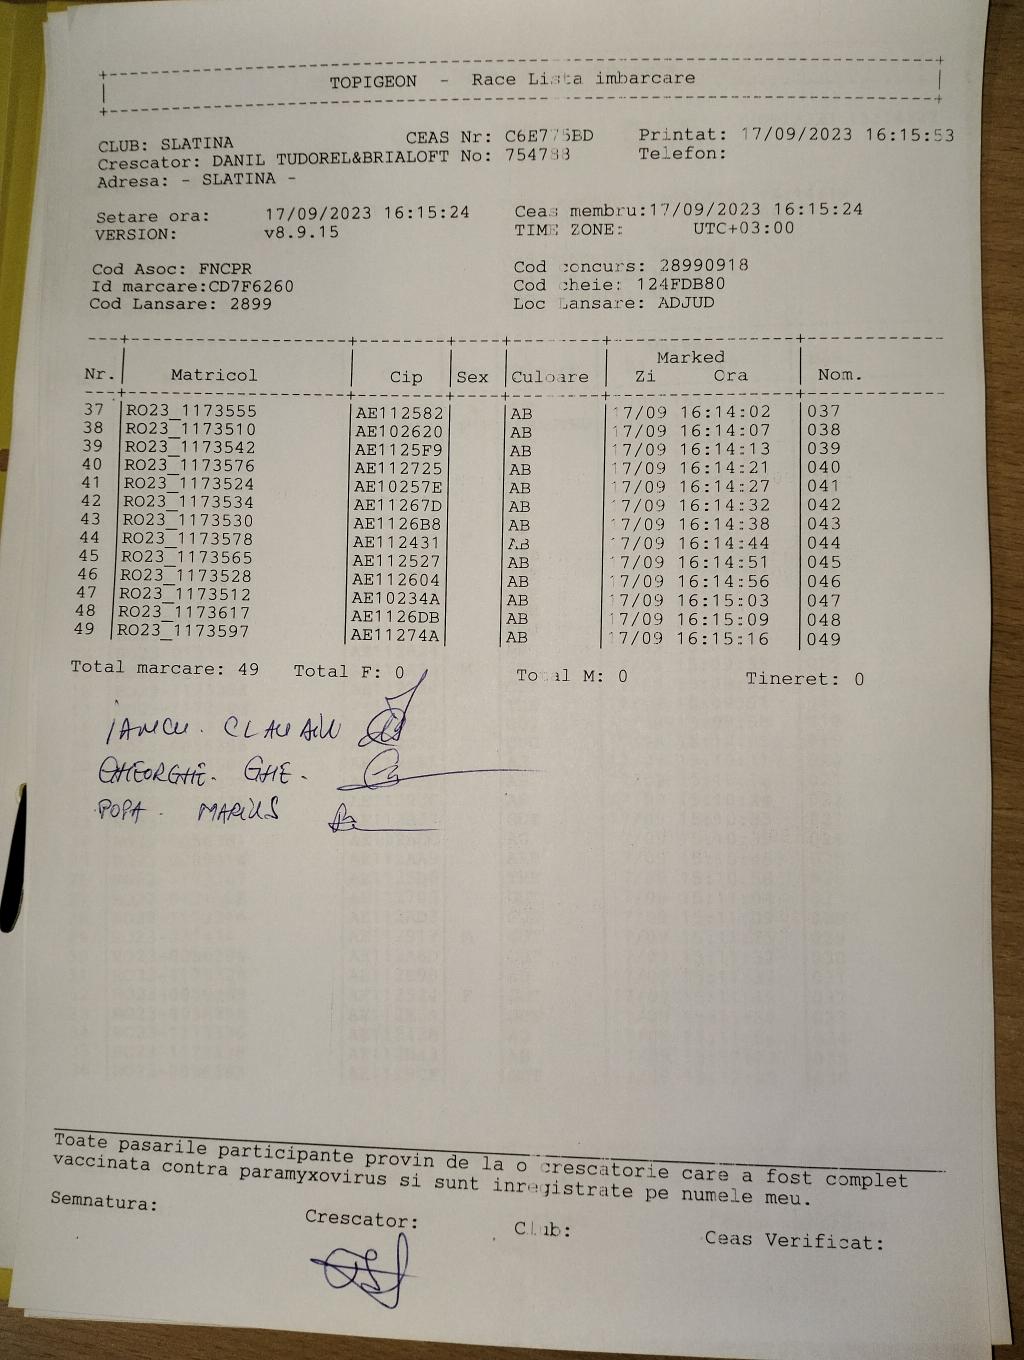 TOPIGEON - Race Lista imbarcare
CLUB: SLATINA CEAS Nr: C6E775BD Printat: 17/09/2023 16:15:53
Crescator: DANIL TUDOREL&BRIALOFT No: 754783 Telefon:
Adresa: - SLATINA -
Setare ora: 17/09/2023 16:15:24 Ceas membru:17/09/2023 16:15:24
VERSION: v8.9.15 TIME ZONE: UTC+03:00
Cod Asoc: FNCPR Cod concurs: 28990918
Id marcare:CD7F6260 Cod cheie: 124FDB80
Cod Lansare: 2899 Loc Lansare: ADJUD
Marked
Nr. Matricol Cip Sex Culoare Zi Ora Nom.
37 RO23_1173555 AE112582 AB 17/09 16:14:02 037
38 RO23_1173510 AE102620 AB 17/09 16:14:07 038
39 RO23_1173542 AE1125F9 AB 17/09 16:14:13 039
40 RO23_1173576 AE112725 AB 17/09 16:14:21 040
41 RO23_1173524 AE10257E AB 17/09 16:14:27 041
42 RO23_1173534 AE11267D AB 17/09 16:14:32 042
43 RO23_1173530 AE1126B8 AB 17/09 16:14:38 043
44 RO23_1173578 AE112431 AB 17/09 16:14:44 044
45 RO23_1173565 AE112527 AB 17/09 16:14:51 045
46 RO23_1173528 AE112604 AB 17/09 16:14:56 046
47 RO23_1173512 AE10234A AB 17/09 16:15:03 047
48 RO23_1173617 AE1126DB AB 17/09 16:15:09 048
49 RO23_1173597 AE11274A AB 17/09 16:15:16 049
Total marcare: 49 Total F: 0 Total M: 0 Tineret: 0
IANCU. CLAUDIU
GHEORGHE. GHE.
POPA. MARIUS
Toate pasarile participante provin de la o crescatorie care a fost complet
vaccinata contra paramyxovirus si sunt inregistrate pe numele meu.
Semnatura: Crescator: Club: Ceas Verificat: